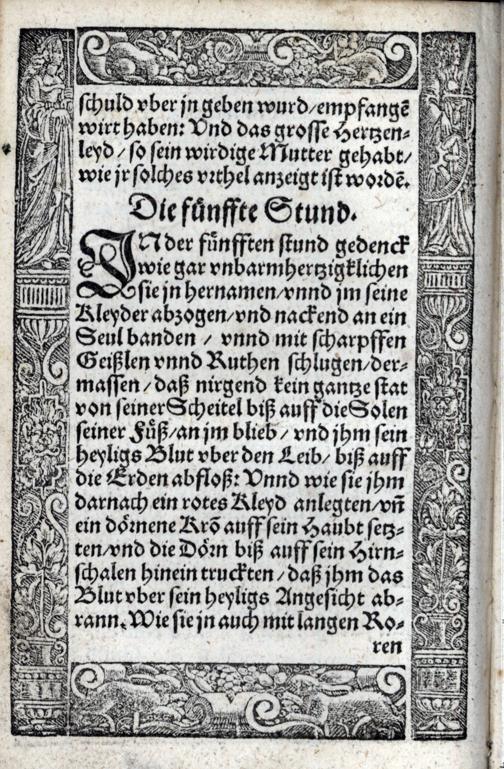 schuld vber jn geben wurd/empfangē
wirt haben: Vnd das grosse Hertzen-
leyd/so sein wirdige Mutter gehabt/
wie jr solches vrthel anzeigt ist wordē.
Die fünffte Stund.
JN der fünfften stund gedenck
wie gar vnbarmhertzigklichen
sie jn hernamen/vnnd jm seine
Kleyder abzogen/vnd nackend an ein
Seul banden / vnnd mit scharpffen
Geißlen vnnd Ruthen schlugen/der-
massen/daß nirgend kein gantze stat
von seiner Scheitel biß auff die Solen
seiner Füß/an jm blieb/ vnd jhm sein
heyligs Blut vber den Leib/ biß auff
die Erden abfloß: Vnnd wie sie jhm
darnach ein rotes Kleyd anlegten/vñ
ein dörnene Krō auff sein Haubt setz-
ten/vnd die Dörn biß auff sein Hirn-
schalen hinein truckten/daß jhm das
Blut vber sein heyligs Angesicht ab-
rann. Wie sie jn auch mit langen Ro-
ren